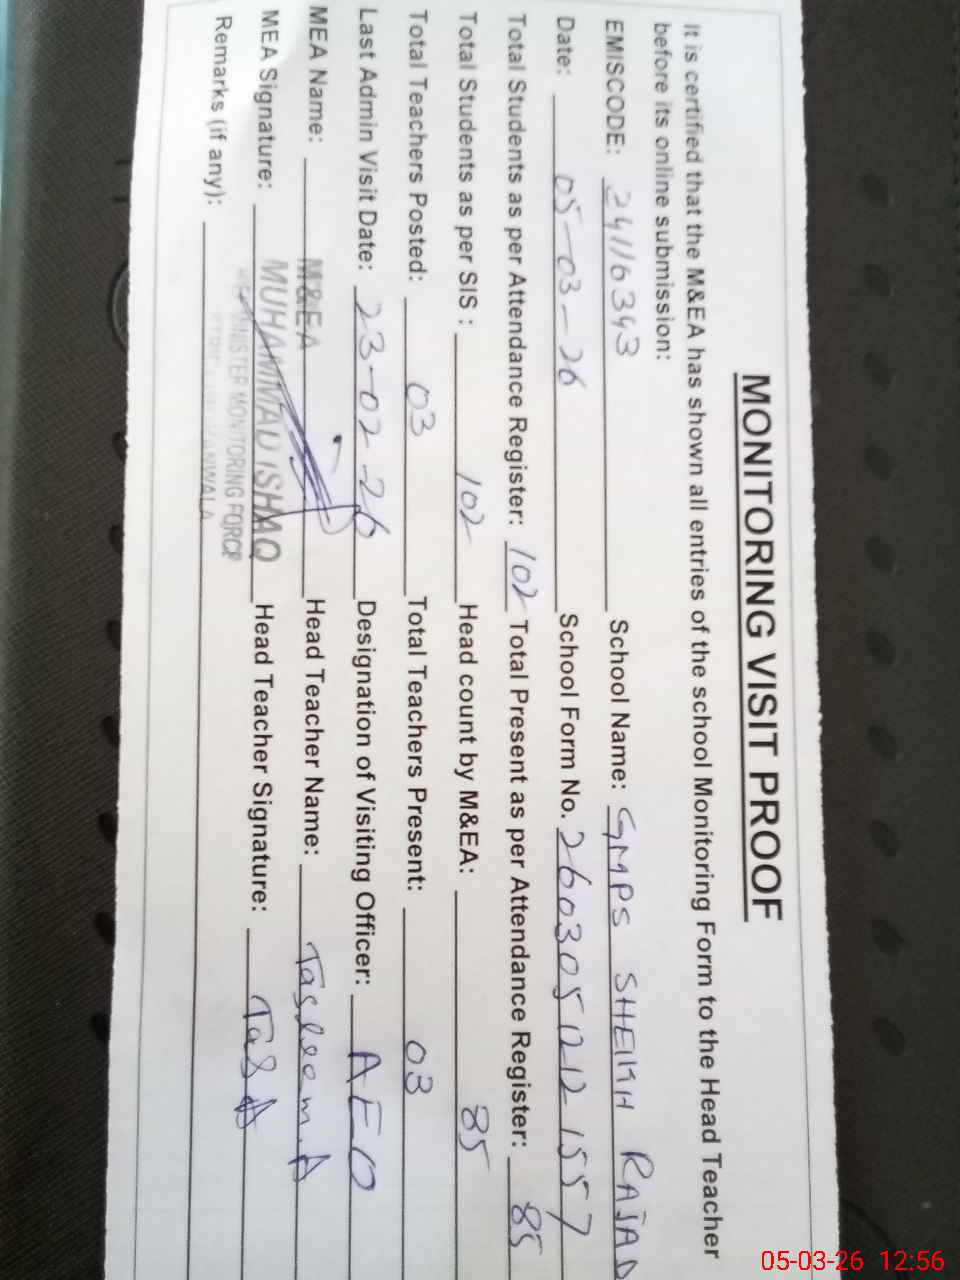 MONITORING VISIT PROOF
It is certified that the M&EA has shown all entries of the school Monitoring Form to the Head Teacher
before its online submission:
EMISCODE: 34116343 School Name: GMPS SHEIKH RAJAD
Date: 05-03-26 School Form No. 2603051212 1557
Total Students as per Attendance Register: 102 Total Present as per Attendance Register: 85
Total Students as per SIS : 102 Head count by M&EA: 85
Total Teachers Posted: 03 Total Teachers Present: 03
Last Admin Visit Date: 23-02-26 Designation of Visiting Officer: AEO
MEA Name: M&EA Head Teacher Name: Tasleem.A
MEA Signature: MUHAMMAD ISHAQ Head Teacher Signature:
MINISTER MONITORING FORCE
Remarks (if any):
05-03-26 12:56